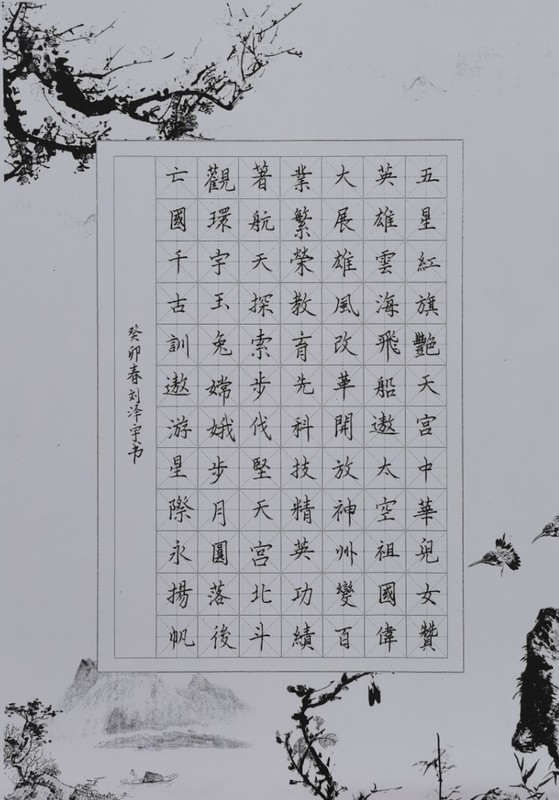 五星紅旗艷天宮中華兒女贊
英雄雲海飛船遨太空祖國偉
大展雄風改革開放神州變百
業繁榮教育先科技精英功績
著航天探索步伐堅天宮北斗
觀環宇玉兔嫦娥步月圓落後
亡國千古訓遨游星際永揚帆
癸卯春刘泽宇书